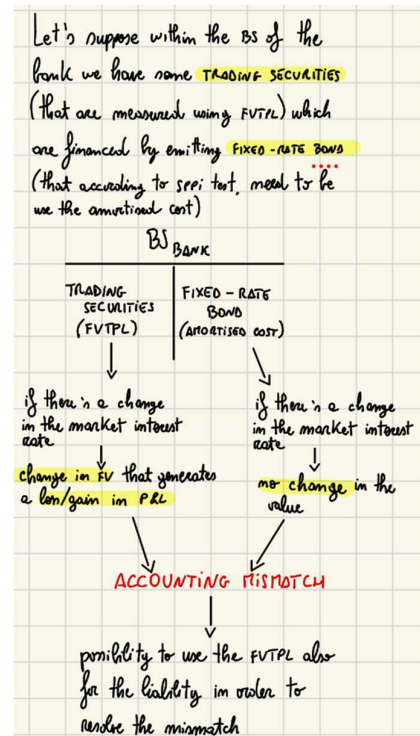 Let's suppose within the BS of the
bank we have some TRADING SECURITIES
(that are measured using FVTPL) which
are financed by emitting FIXED-RATE BOND
(that according to sppi test, need to be
use the amortised cost)
BS BANK
TRADING
SECURITIES
(FVTPL)
FIXED-RATE
BOND
(AMORTISED COST)
if there is a change
in the market interest
rate
if there is a change
in the market interest
rate
change in FV that generates
a loss/gain in P&L
no change in the
value
ACCOUNTING MISMATCH
possibility to use the FVTPL also
for the liability in order to
resolve the mismatch